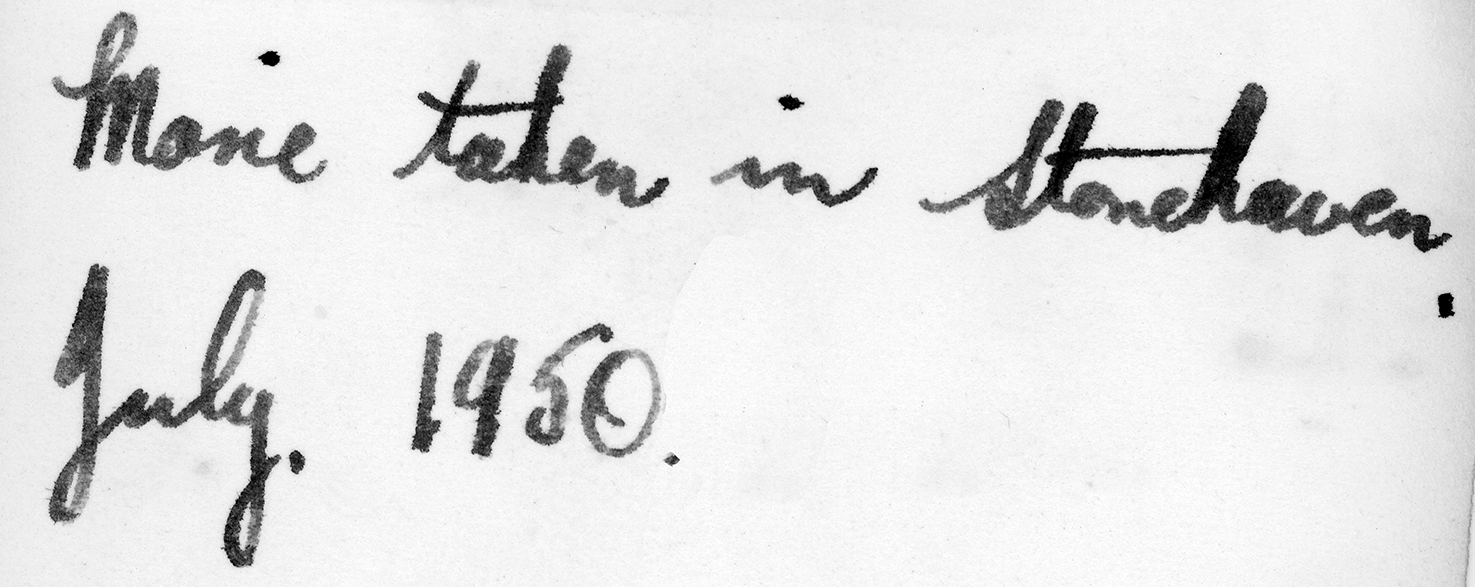 Marie taken in Stonehaven.
July. 1950.